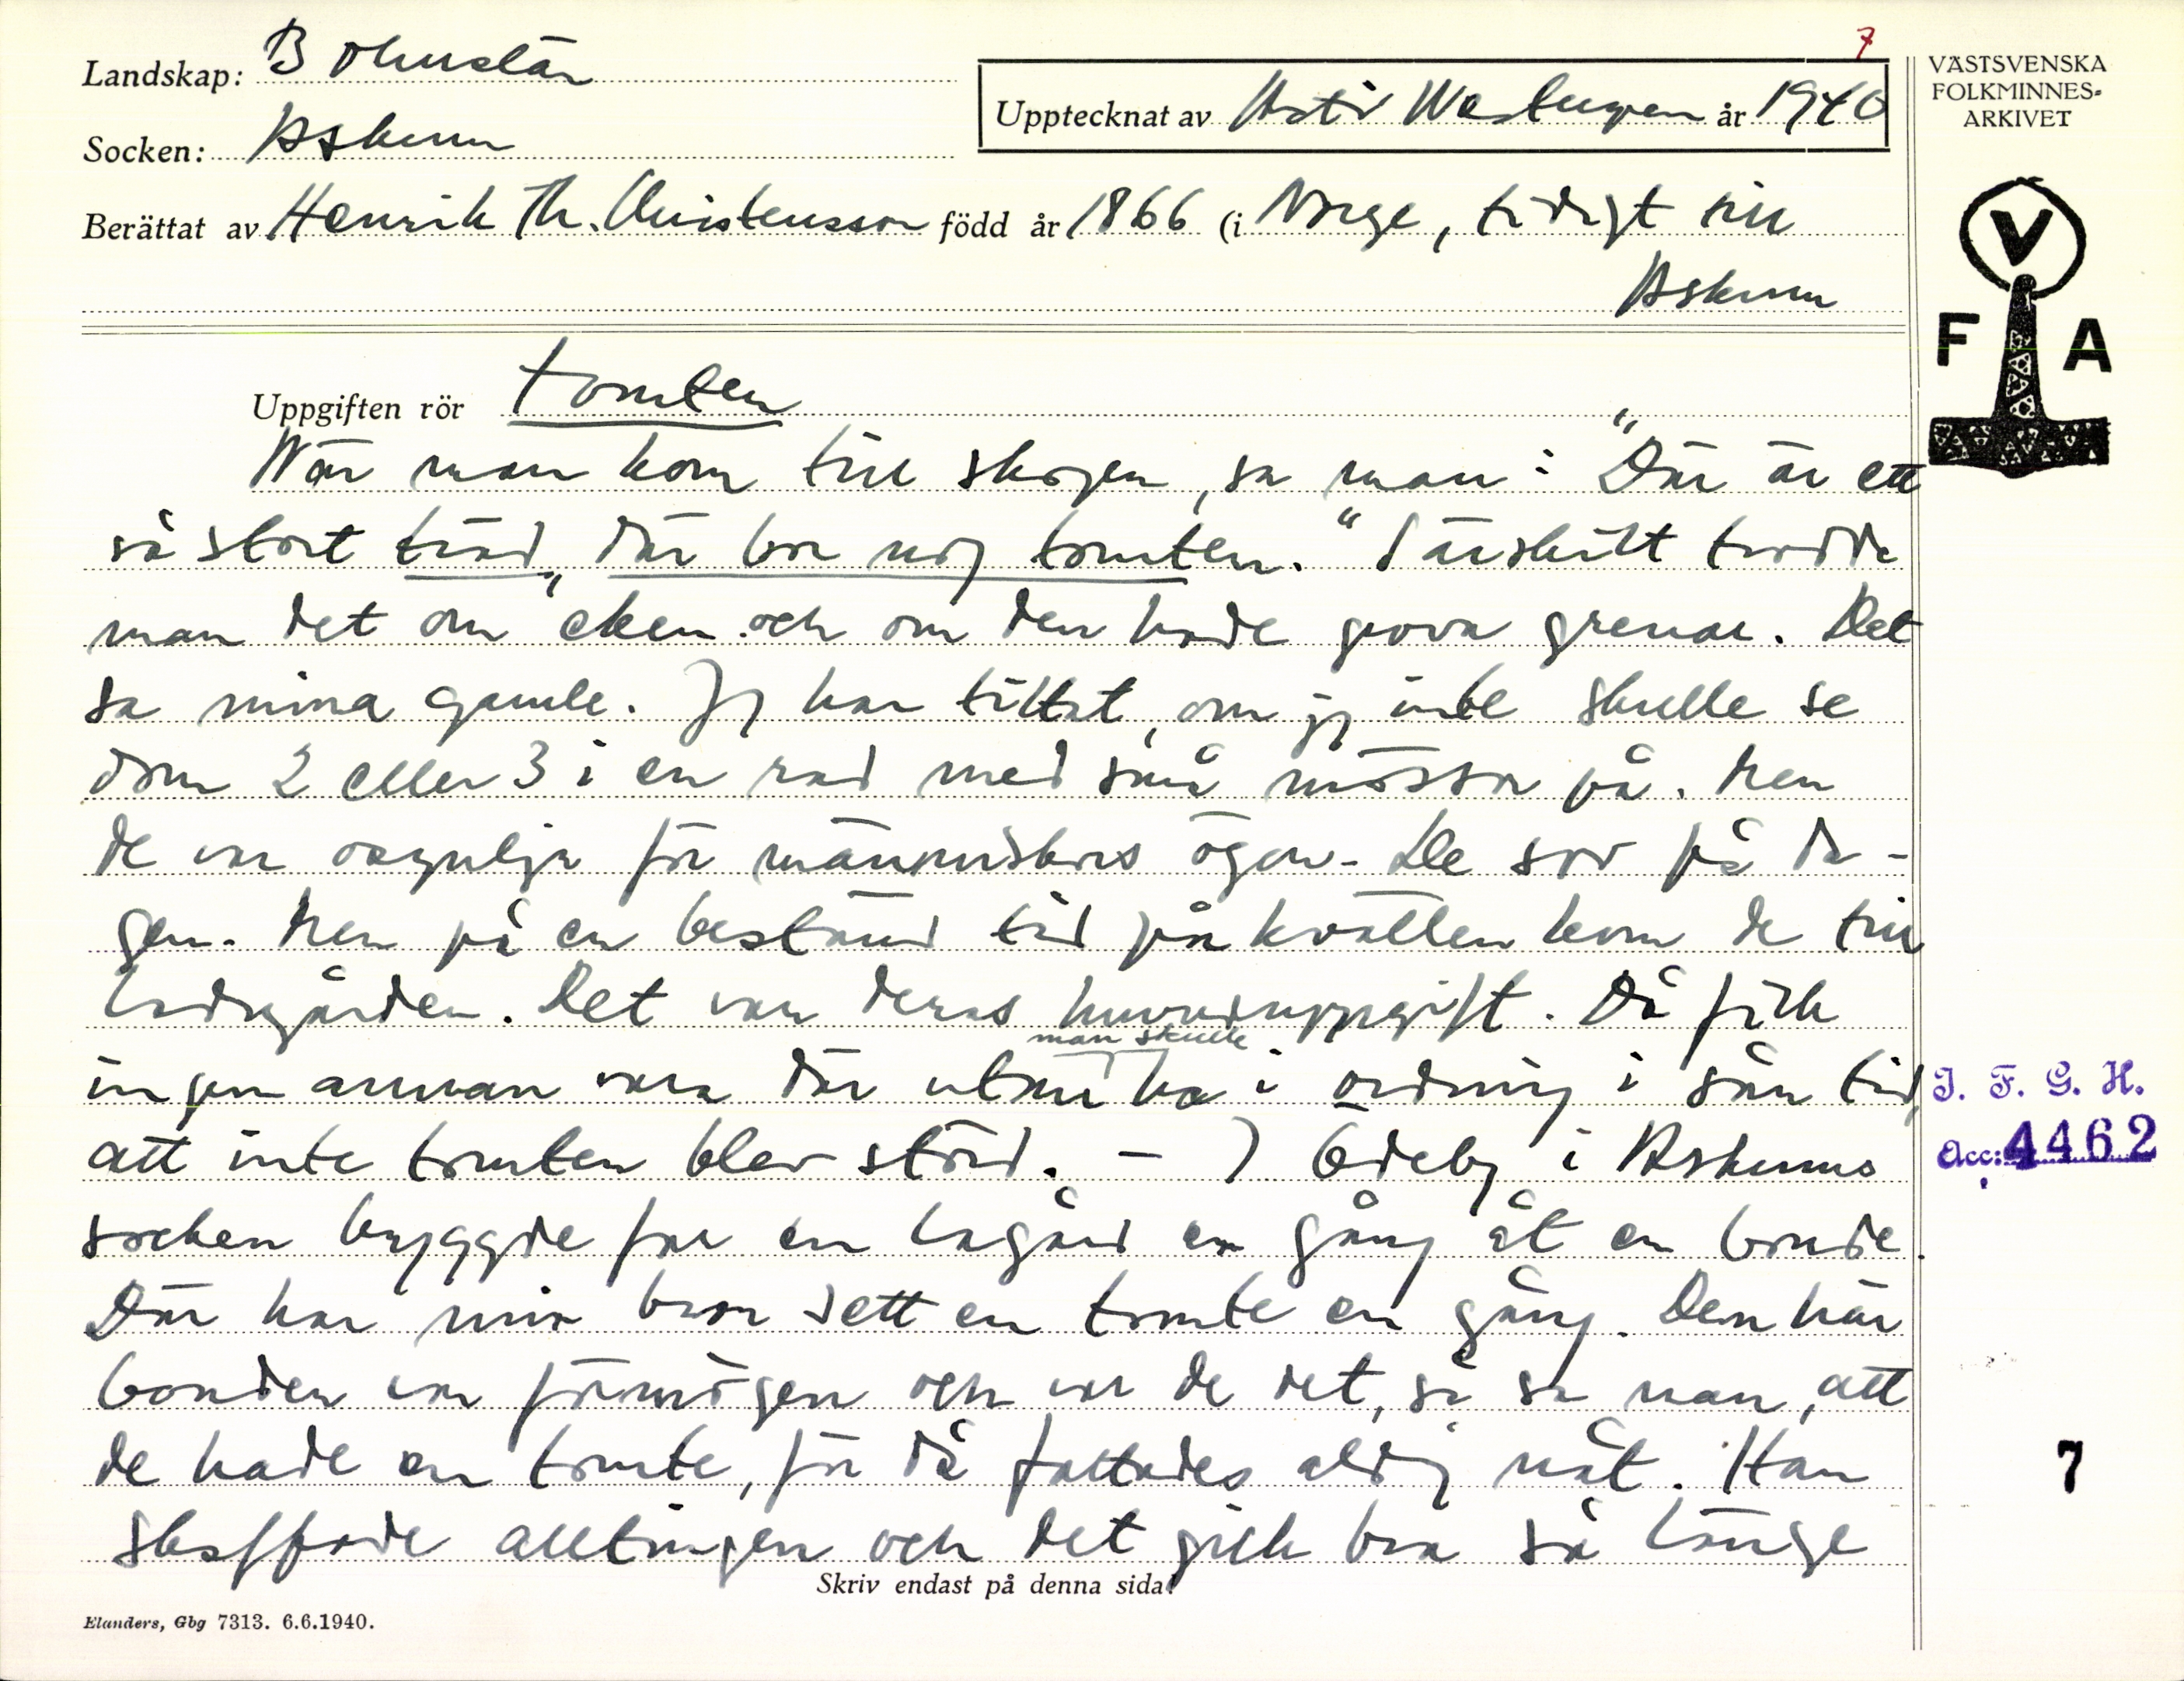 7
Landskap: Bohuslän
Upptecknat av Astrid Westergren år 1940
VÄSTSVENSKA
FOLKMINNES-
ARKIVET
Socken: Askum
Berättat av Henrik Th. Christensson född år 1866 (i Norge, tidigt till
Askum
V
F A
Uppgiften rör tomten
När man kom till skogen, sa man: "Där är ett
så stort träd, där bor nog tomten." Särskilt trodde
man det om eken och om den hade grova grenar. Det
sa mina gamle. Jg har tittat, om jg inte skulle se
dom 2 eller 3 i en rad med små mössor på. Men
de var osynliga för människors ögon. De sov på da-
gen. Men på en bestämd tid på kvällen kom de till
ladugården. Det var deras huvuduppgift. Då fick
ingen annan vara där utan man skulle ha i ordning i sån tid,
att inte tomten blev störd. - I Ödeby i Askums
socken byggde far en lagård en gång åt en bonde.
Där har min bror sett en tomte en gång. Den här
bonden var förmögen och var de det, så sa man, att
de hade en tomte, för då fattades aldrig nåt. Han
skaffade alltingen och det gick bra så länge
Skriv endast på denna sida!
Elanders, Gbg 7313. 6.6.1940.
I. F. G. H.
Acc: 4462
7